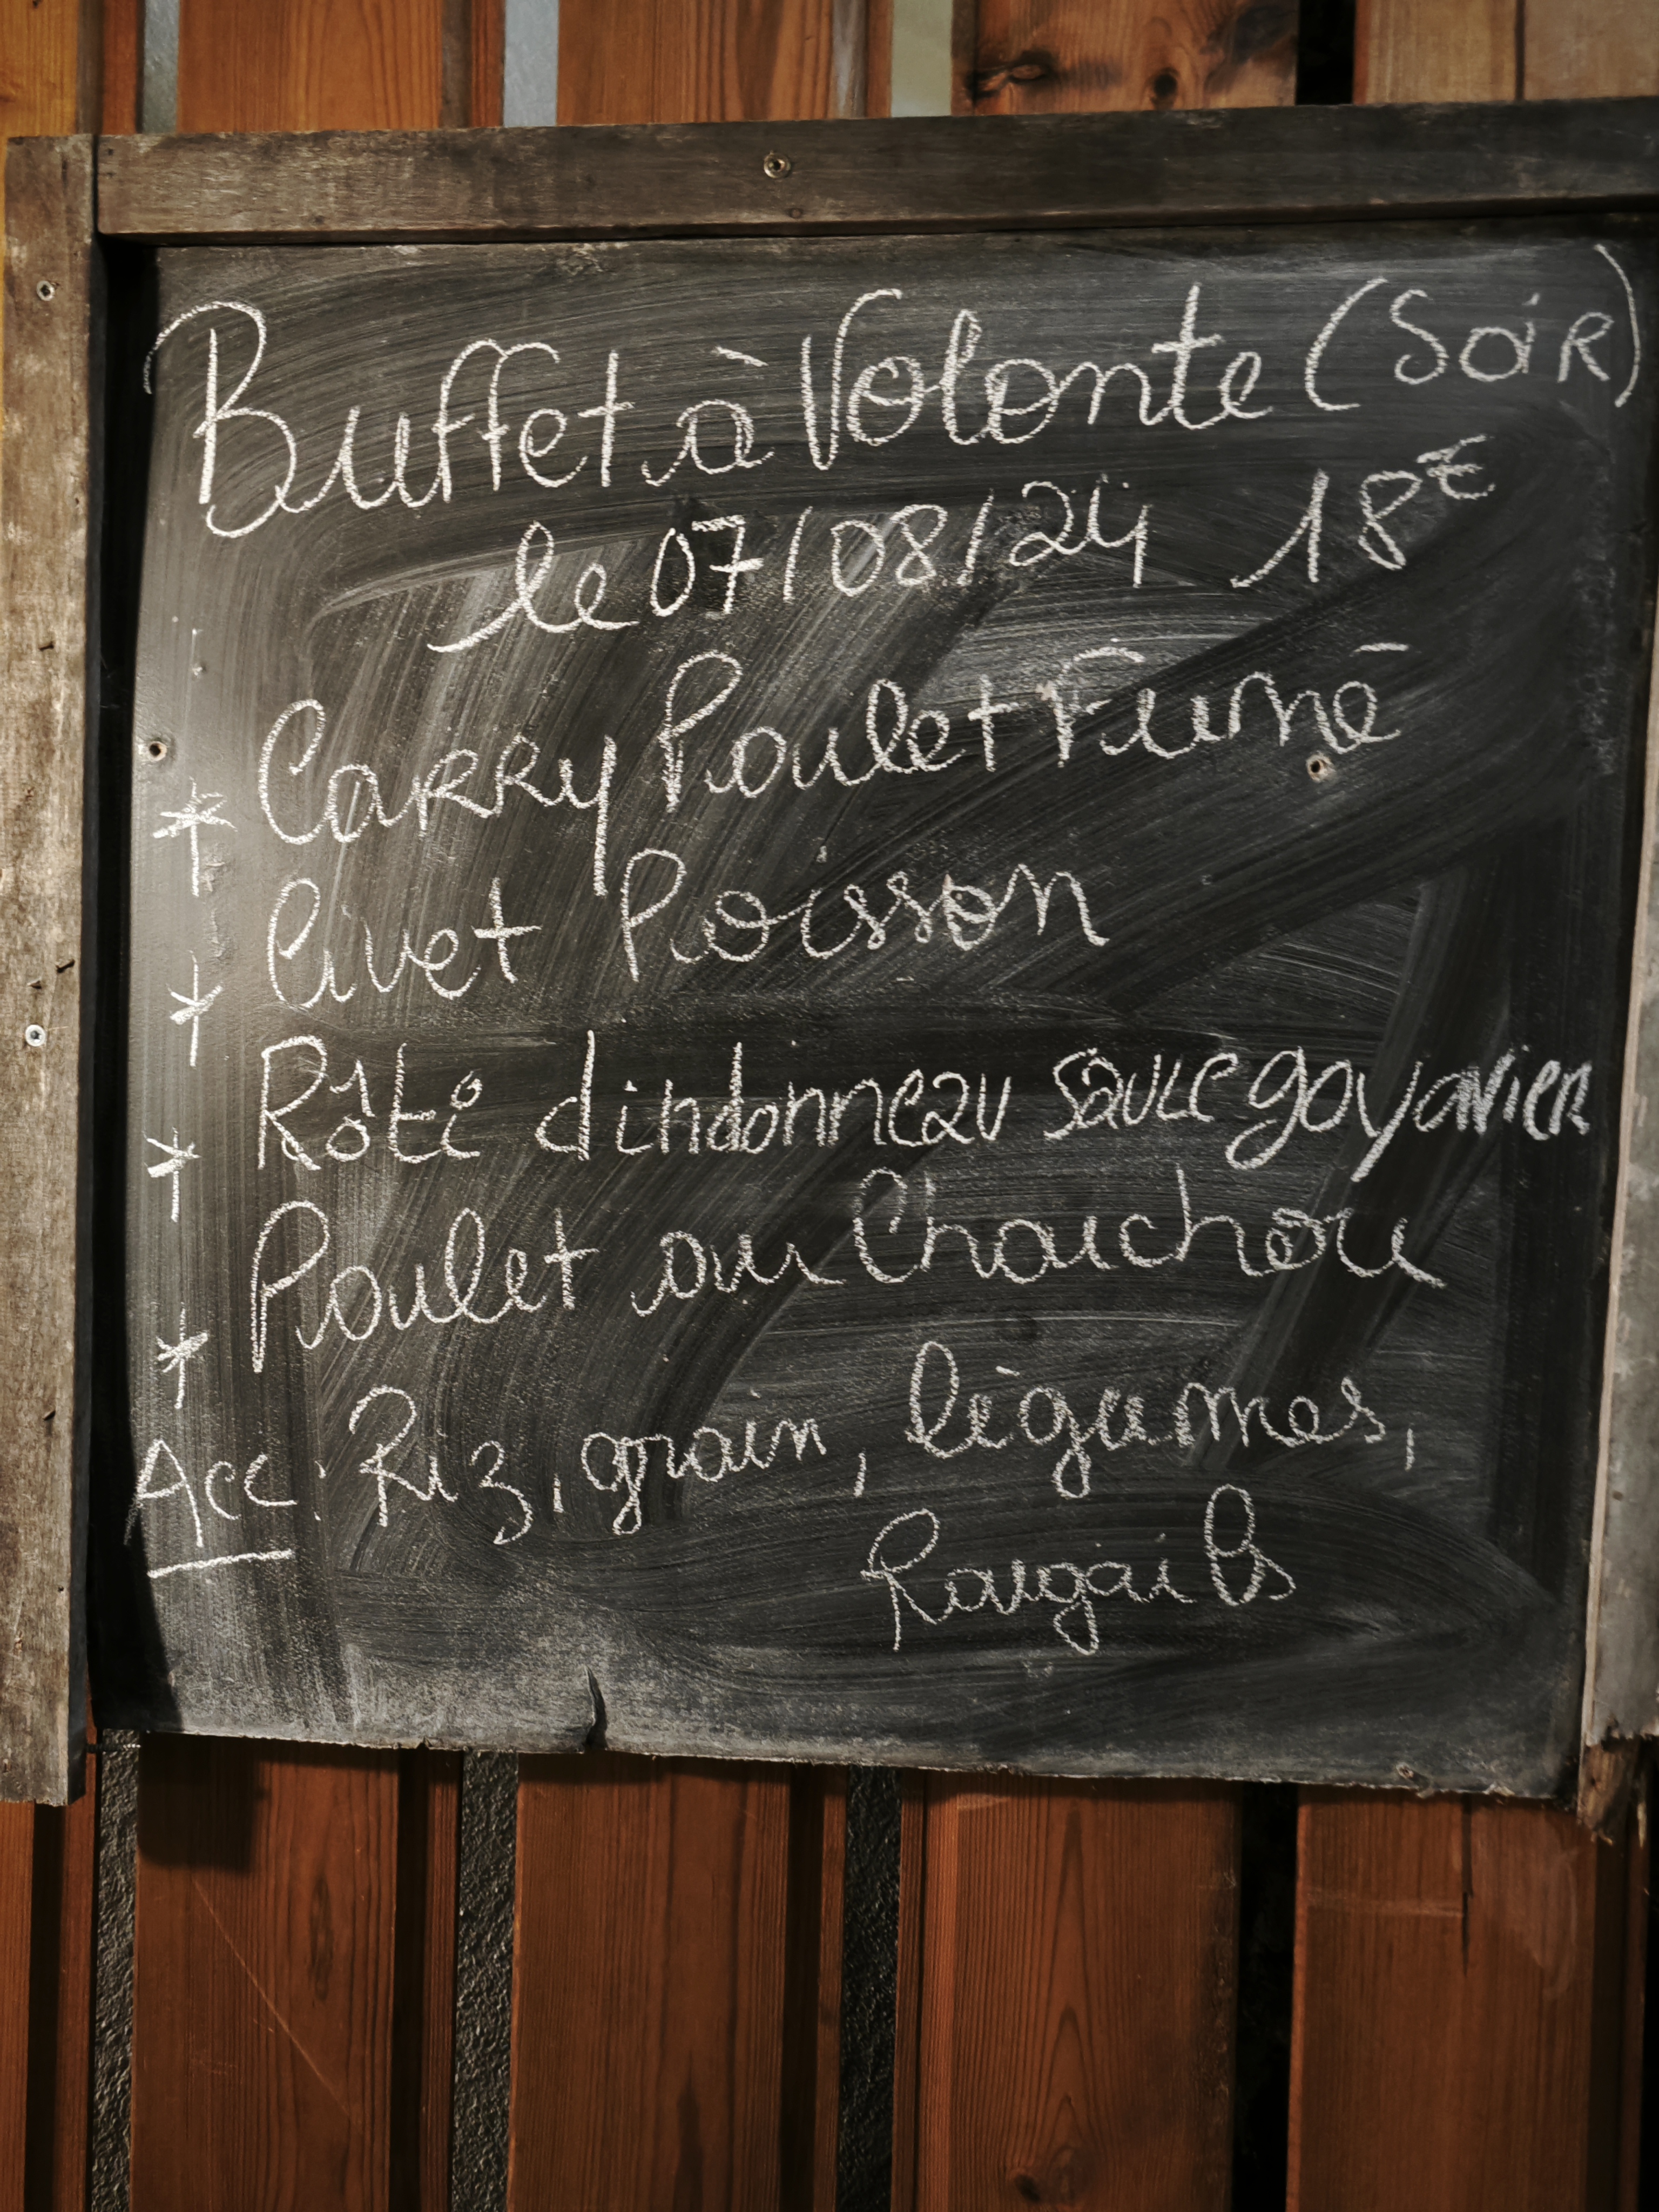 Buffet à Volonte (Soir)
le 07/08/24 18€
* Carry Poulet Fumé
* Civet Poisson
* Rôti dindonneau sauce goyavier
* Poulet au Chouchou
Acc : Riz, grain, légumes,
Rougails